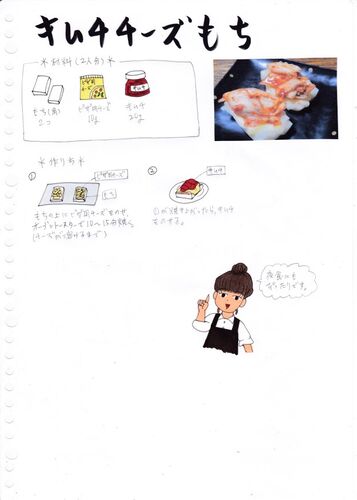 キムチチーズもち
*材料(2人分)*
もち(角)
2つ
ピザ用チーズ
キムチ
20g
*作り方*
①
ピザ用チーズ
もち
もちの上にピザ用チーズをのせ、
オーブントースターで10〜15分焼く
(チーズが溶けるまで)
②
キムチ
①が焼き上がったら、キムチ
をのせる。
夜食にも
ぴったりです。